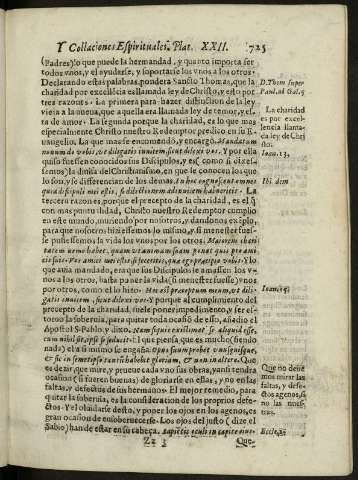 Y Collaciones Espirituales. Plat. XXII. 725
(Padres) lo que puede la hermandad, y quanto importa ser
todos vnos, y el ayudarse, y soportarse los vnos a los otros.
Declarando estas palabras, pondera Sancto Thomas, que la
charidad por excelécia es llamada ley de Christo, y esto por
tres razones. La primera para hazer distinction de la ley
vieja a la nueua, que aquella era llamada ley de temor, y es-
ta de amor. La segunda porque la charidad, es lo que mas
especialmente Christo nuestro Redemptor predico en su E-
uangelio. La que mas se encomendó, y encargó. Mandatum
nouum do vobis, vt diligatis inuicem, sicut dilexi vos. Y por ella
quiso fuessen conocidos sus Discipulos, y es (como si dixesse-
mos) la diuisa del Christianismo, en que le conocen los que
lo son, y se differencian de los demas. In hoc cognoscent omnes
quia discipuli mei estis, si dilectionem ad inuicem habueritis. La
tercera razon es, porque el precepto de la charidad, es el q̃
con mas puntualidad, Christo nuestro Redemptor cumplio
en este mundo, muriendo por nosotros, y dandonos exéplo,
para que nosotros hiziessemos lo mismo, y si menester fues-
se pusiessemos la vida los vnos por los otros. Maiorem chari
tatem nemo habet, quam vt animam suam ponat quis pro ami-
cis suis. Vos amici mei estis si feceritis, quæ ego præcipio vobis. Y lo
que auia mandado, era que sus Discipulos se amassen los v-
nos a los otros, hasta poner la vida (si menester fuesse) vnos
por otros, como el lo hizo. Hoc est præceptum meum, vt dili-
gatis inuicem, sicut dilexi vos. Y porque al cumplimiento del
precepto de la charidad, suele poner impedimento, y ser el-
toruo la soberuia, para quitar toda ocasiō de esto, añadio el
Apostol S. Pablo, y dixo. Nam si quis existimat se aliquid esse,
cum nihil sit, ipse se seducit. El que piensa, que es mucho (siendo
nada) el a si mismo se engaña. Opus suum probet vnusquisque,
& sic in semetipso tantū habebit gloriam, & non in altero. Que
es dezir, que mire, y prueue cada vno sus obras, y ansi tendra
ocasion (si fueren buenas) de gloriarse en ellas, y no en las
faltas, y defectos de sus hermanos. El mejor remedio, para
quitar la soberuia, es la consideracion de los proprios defe-
ctos. Y el oluidarse desto, y poner los ojos en los agenos, es
gran ocasion de ensoberuecerse. Los ojos del justo (dize el
Sabio) han de estar en su cabeça. Sapientis oculi in capite eius.
Zz 3 Que-
D. Thom super
Paul. ad Gal. 6
La charidad
es por excel-
lencia llama-
da ley de Chri
sto.
Ioan. 13.
Ibi dem
Ioan. 15.
Que no deue
mos mirar las
faltas, y defe-
ctos agenos, si
no las nues-
tras.
Eccle. 2.